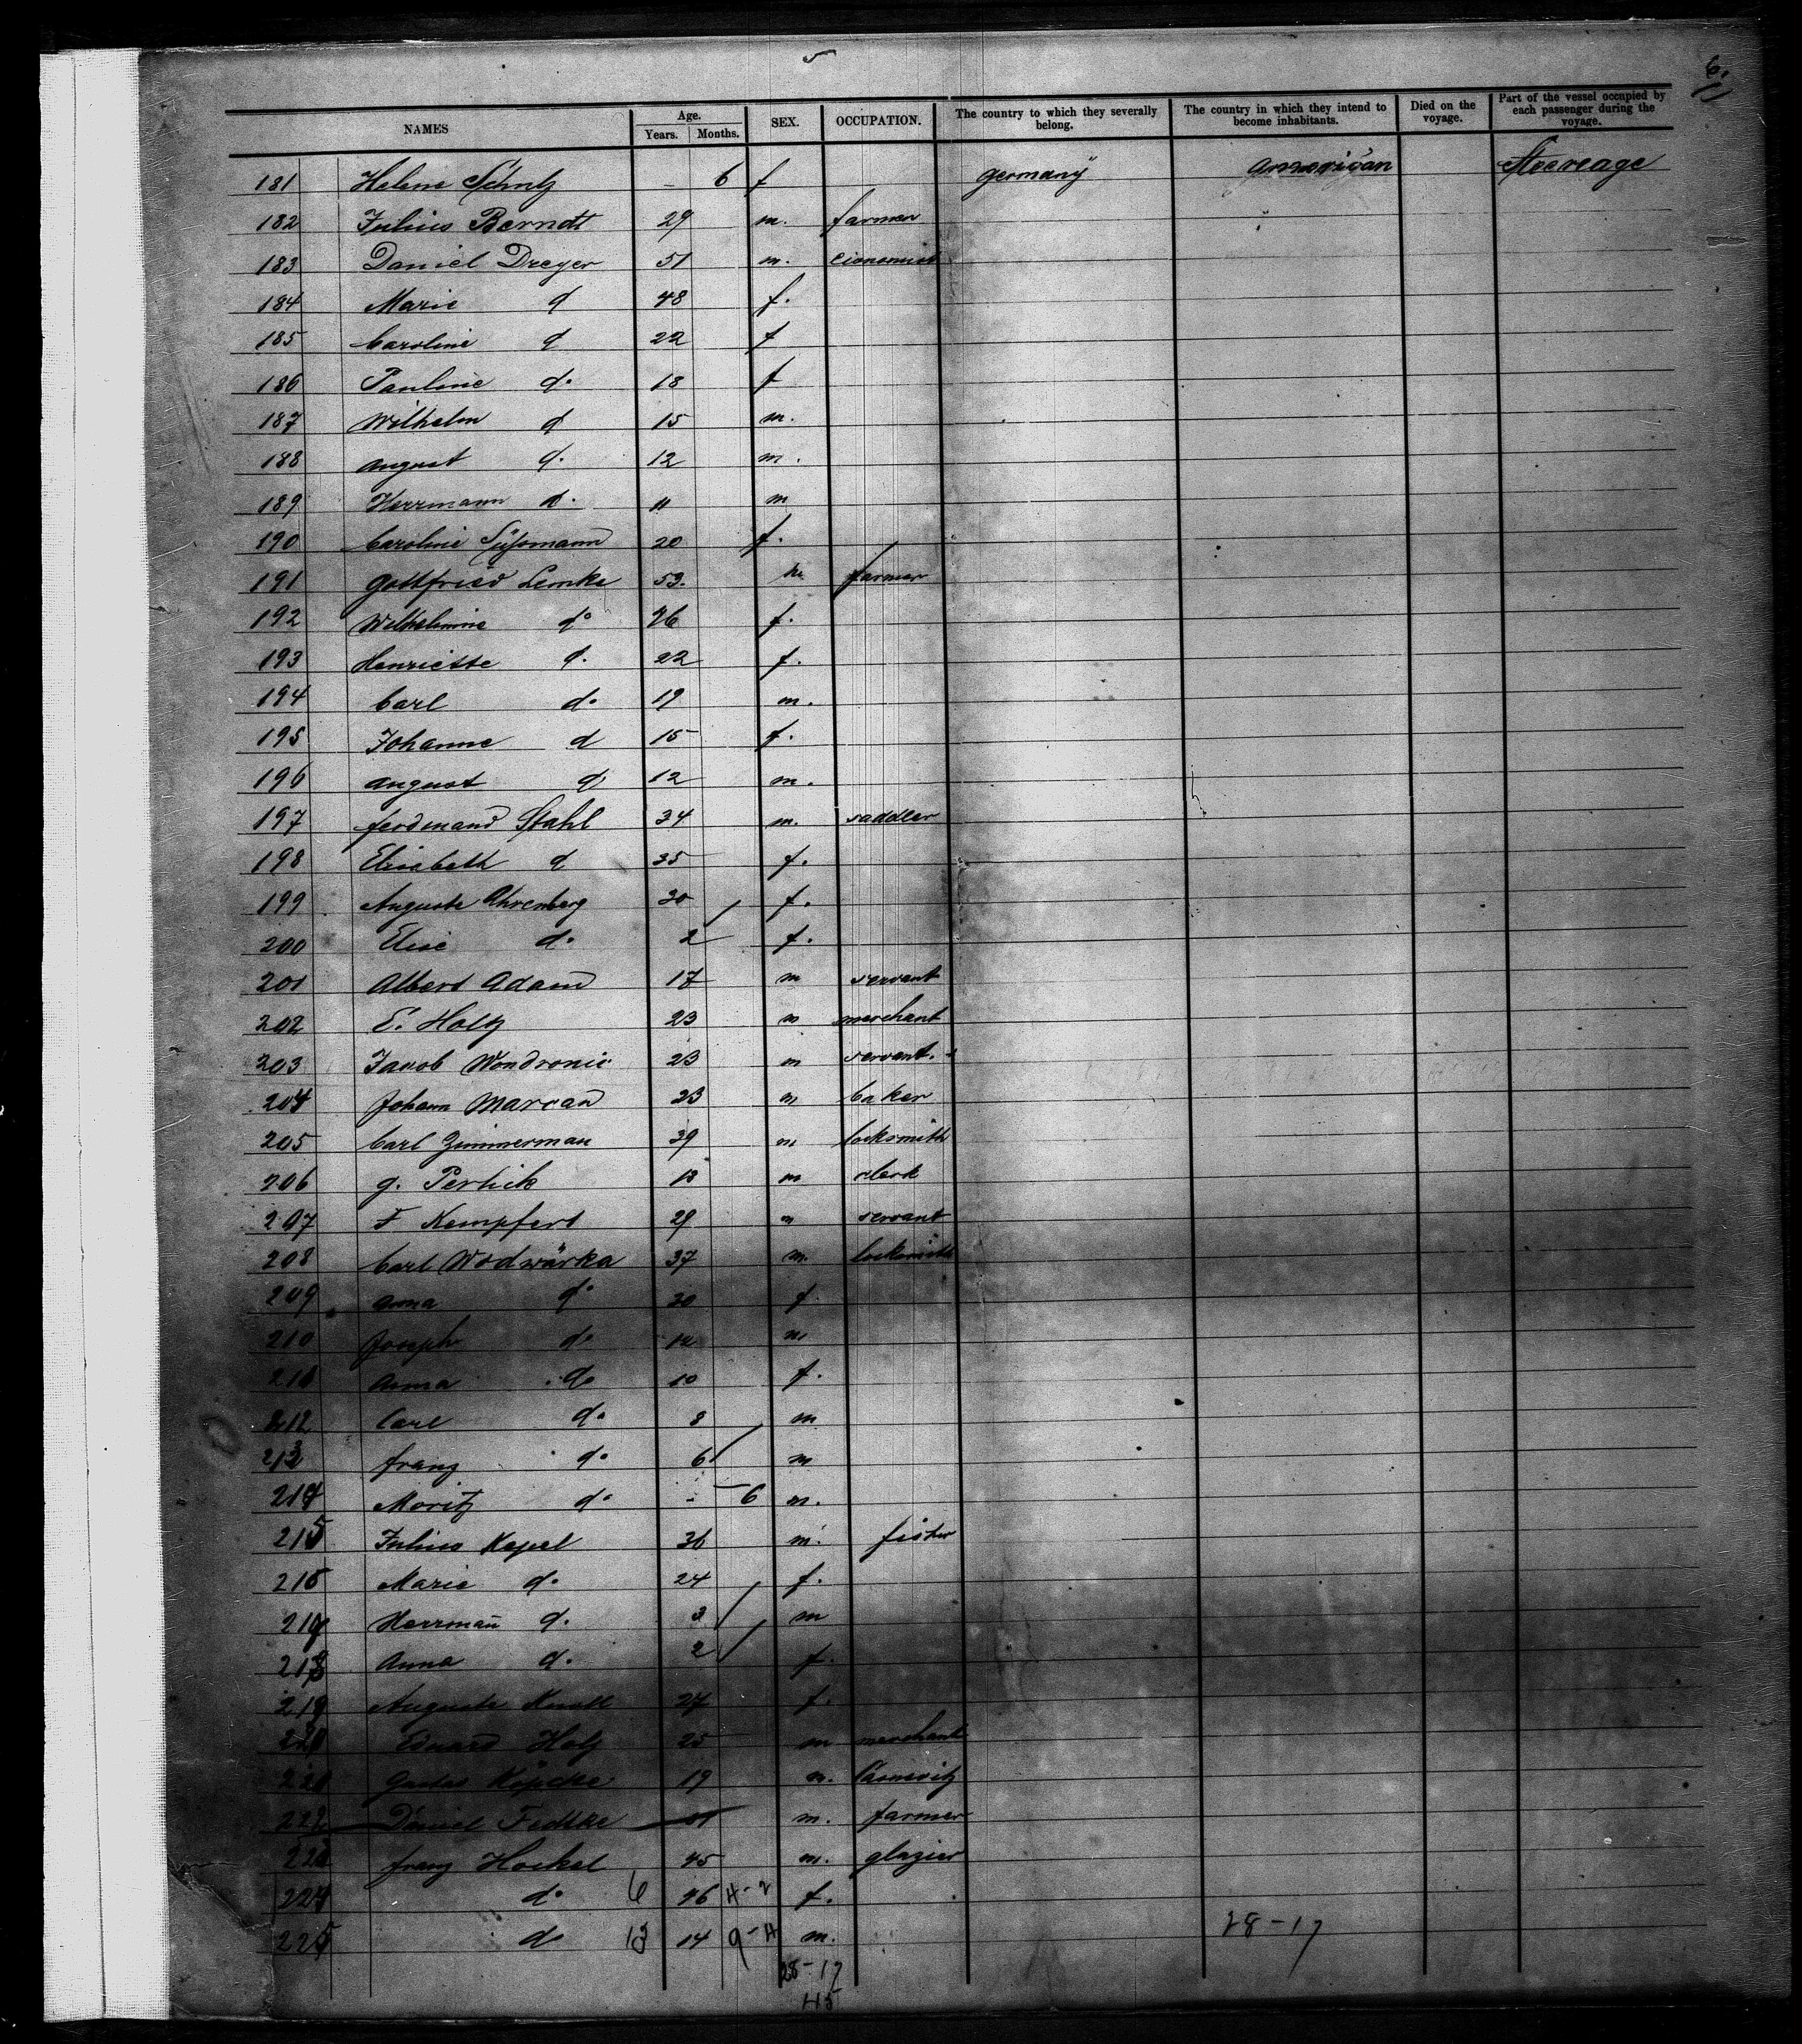 5
6.
11
NAMES Age. Years. Months. SEX. OCCUPATION. The country to which they severally belong. The country in which they intend to become inhabitants. Died on the voyage. Part of the vessel occupied by each passenger during the voyage.
181 Helene Schulz - 6 f Germany American Steerage
182 Julius Berndt 29 m. farmer
183 Daniel Dreyer 51 m.
184 Marie d 48 f.
185 Caroline d 22 f
186 Pauline do 18 f
187 Wilhelm d 15 m.
188 August d. 12 m.
189 Herrmann d. 11 m
190 Caroline Süßmann 20 f.
191 Gottfried Lemke 53. m farmer
192 Wilhelmine do 26 f.
193 Henriette d. 22 f.
194 Carl do 19 m.
195 Johanne d 15 f.
196 August d 12 m.
197 Ferdinand Stahl 34 m. saddler
198 Elisabeth d 35 f.
199 Auguste Ahrenberg 30 f.
200 Elise do 2 f.
201 Albert Adam 17 m servant
202 E. Holz 23 m merchant
203 Jacob Wondronic 23 m servant.
204 Johann Marcan 23 m baker
205 Carl Zimmerman 39 m locksmith
206 G. m clerk
207 F Kempfert 29 m servant
208 Carl Wodwárka 37 m. locksmith
209 Anna do 30 f
210 Joseph do 12 m
211 Anna do 10 f.
212 Carl do 8 m
213 Franz do 6 m
214 Moritz do - 6 m.
215 Julius Kapel 36 m.
216 Marie do 24 f.
217 Herrman̄ d. 3 m
218 Anna d. 2 f.
219 Auguste 27 f.
220 Eduard Holz 25 m merchant
221 Gustav Köpcke 19 m.
222 Daniel Fedtke m. farmer
223 Franz Hockel 45 m. glazier
224 do 6 46 4-2 f.
225 do 13 14 9-4 m. 28-17
28-17
45